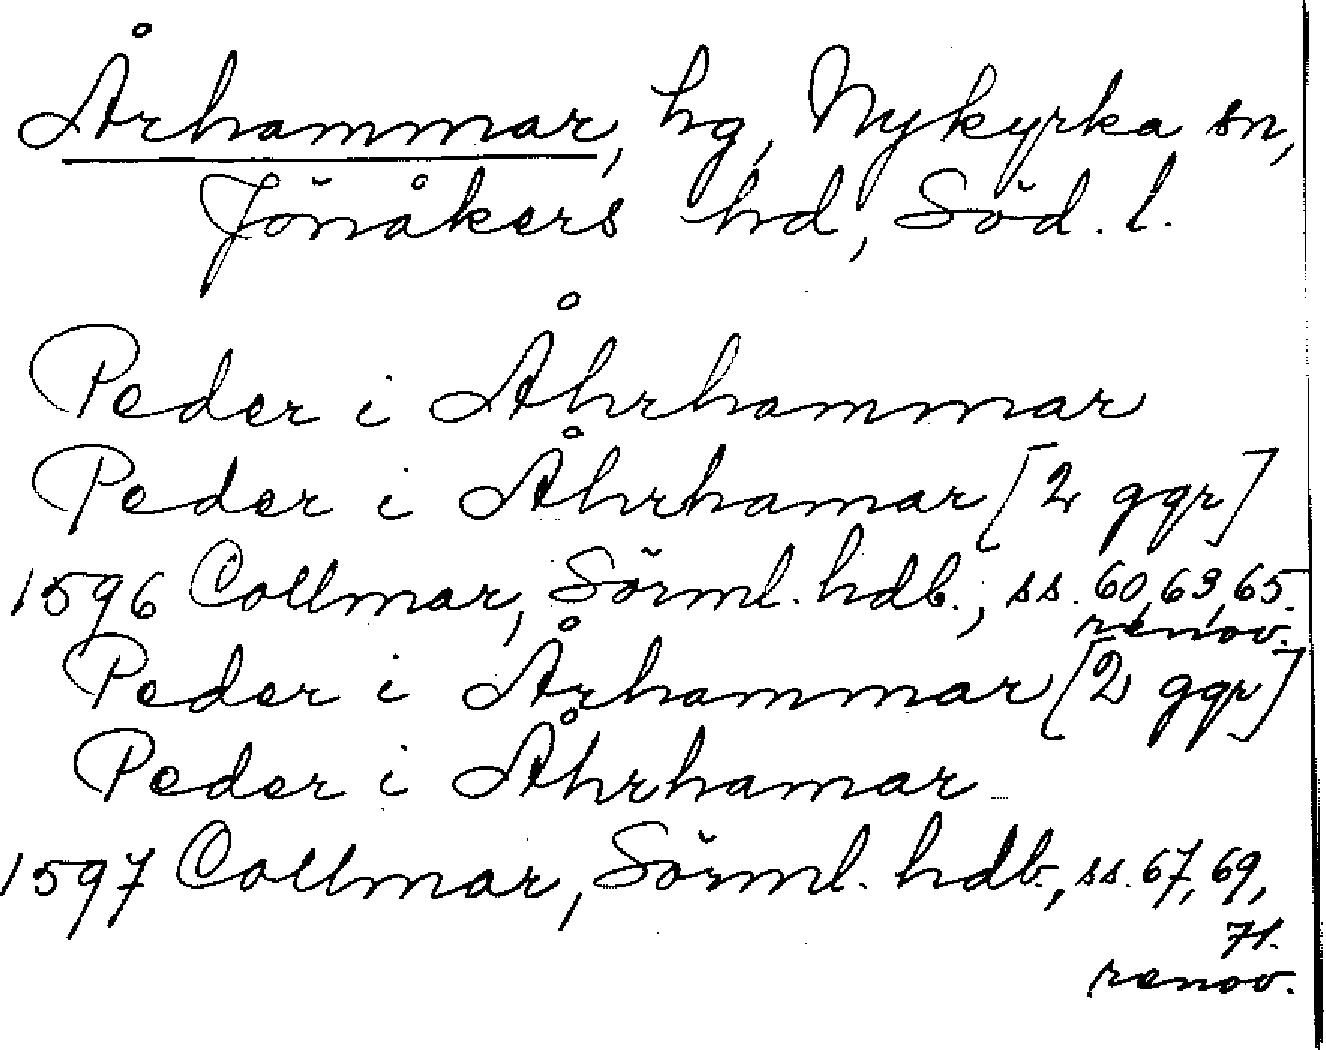 Århammar, hg, Nykyrka sn,
Jönåkers hd, Söd. l.
Peder i Åhrhammar
Peder i Åhrhamar [2 ggr]
1596 Collmar, Sörml. hdb., ss. 60, 63, 65.
renov.
Peder i Århammar [2 ggr]
Peder i Åhrhamar
1597 Collmar, Sörml. hdb., ss. 67, 69,
71.
renov.